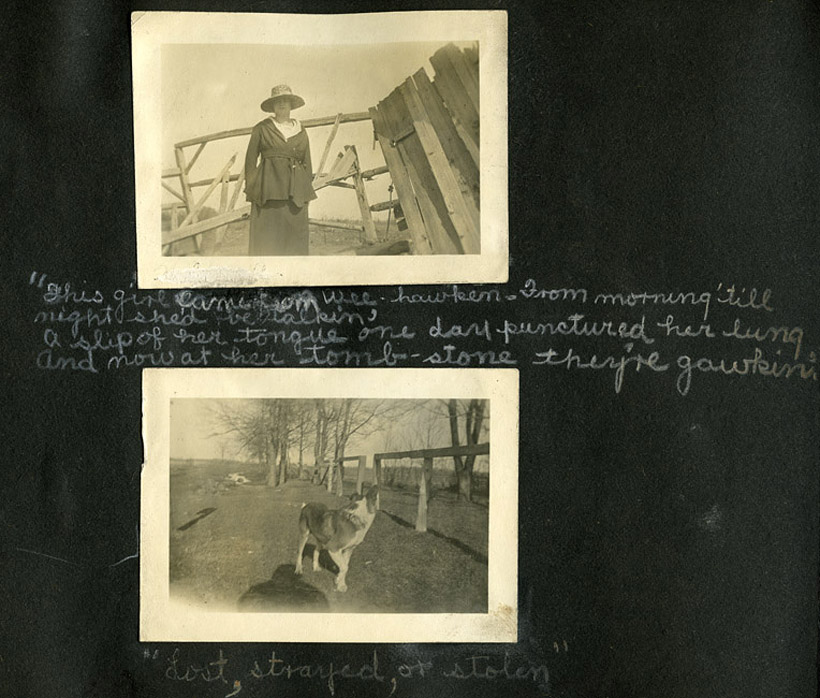 "This girl came from Wee-hawken - From morning 'till
night she'd be talkin'
A slip of her tongue one day punctured her lung
And now at her tomb-stone they're gawkin'.
"Lost, strayed, or stolen"